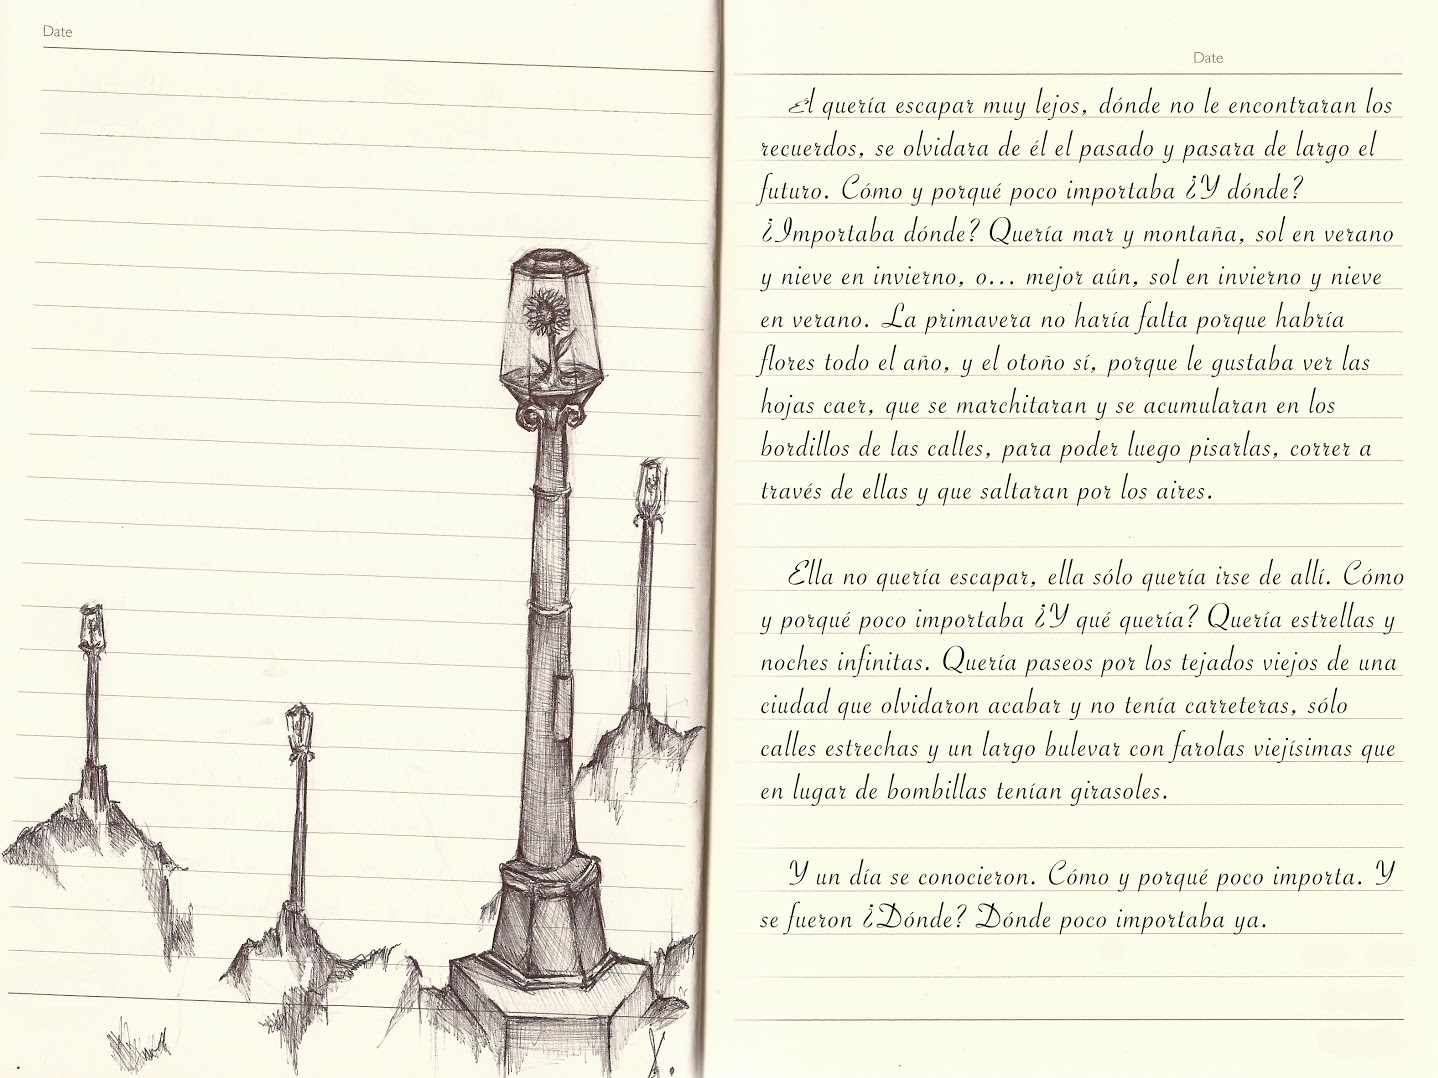 Date
Date
El quería escapar muy lejos, dónde no le encontraran los
recuerdos, se olvidara de él el pasado y pasara de largo el
futuro. Cómo y porqué poco importaba ¿Y dónde?
¿Importaba dónde? Quería mar y montaña, sol en verano
y nieve en invierno, o... mejor aún, sol en invierno y nieve
en verano. La primavera no haría falta porque habría
flores todo el año, y el otoño sí, porque le gustaba ver las
hojas caer, que se marchitaran y se acumularan en los
bordillos de las calles, para poder luego pisarlas, correr a
través de ellas y que saltaran por los aires.
Ella no quería escapar, ella sólo quería irse de allí. Cómo
y porqué poco importaba ¿Y qué quería? Quería estrellas y
noches infinitas. Quería paseos por los tejados viejos de una
ciudad que olvidaron acabar y no tenía carreteras, sólo
calles estrechas y un largo bulevar con farolas viejísimas que
en lugar de bombillas tenían girasoles.
Y un día se conocieron. Cómo y porqué poco importa. Y
se fueron ¿Dónde? Dónde poco importaba ya.